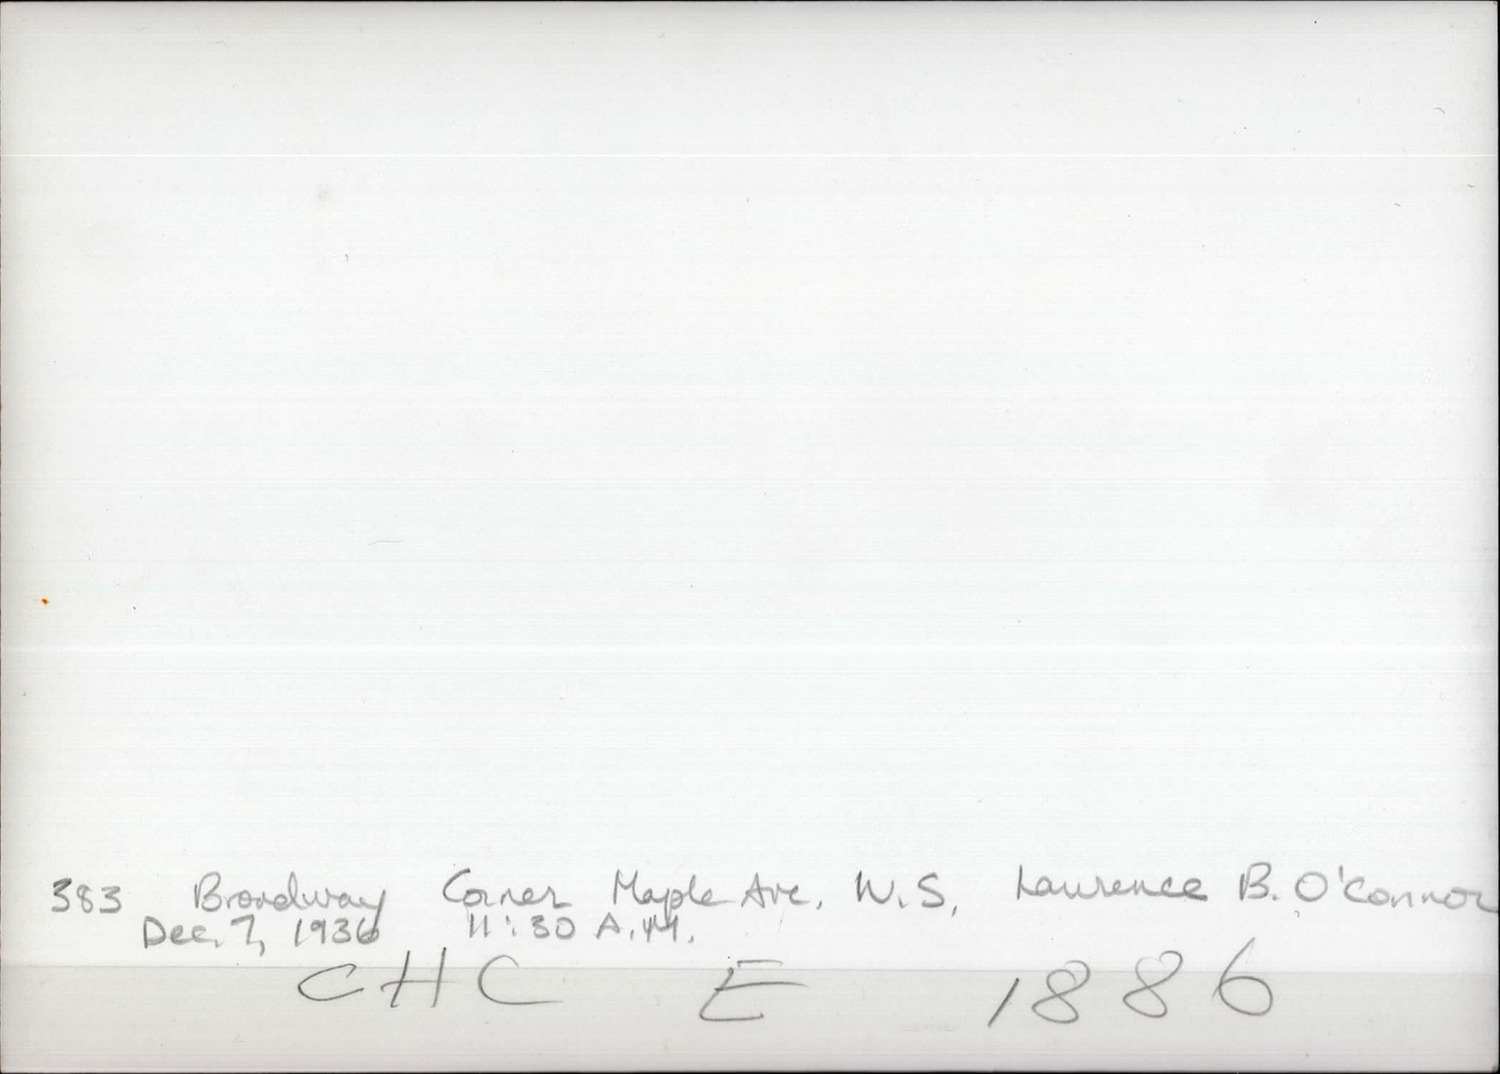 383 Broadway Corner Maple Ave. W.S. Lawrence B. O'Connor
Dec. 7, 1936 11:30 A.M.
CHC E 1886